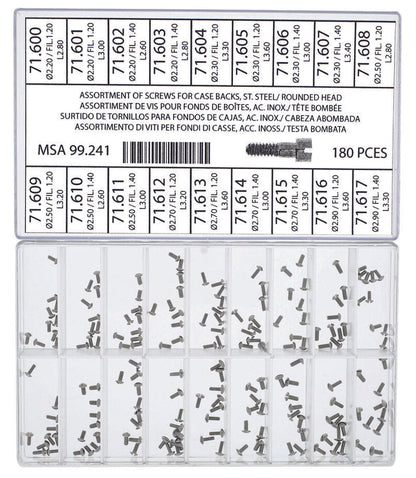 71.600
Ø2.20 / FIL. 1.20
L2.80
71.601
Ø2.20 / FIL. 1.40
L2.80
71.602
Ø2.20 / FIL. 1.40
L2.60
71.603
Ø2.20 / FIL. 1.40
L3.00
71.604
Ø2.30 / FIL. 1.20
L3.30
71.605
Ø2.30 / FIL. 1.20
L3.60
71.606
Ø2.30 / FIL. 1.40
L3.00
71.607
Ø2.30 / FIL. 1.40
L3.20
71.608
Ø2.50 / FIL. 1.20
L2.80
ASSORTMENT OF SCREWS FOR CASE BACKS, ST. STEEL/ ROUNDED HEAD
ASSORTIMENT DE VIS POUR FONDS DE BOÎTES, AC. INOX./ TÊTE BOMBÉE
SURTIDO DE TORNILLOS PARA FONDOS DE CAJAS, AC. INOX./ CABEZA ABOMBADA
ASSORTIMENTO DI VITI PER FONDI DI CASSE, ACC. INOSS./ TESTA BOMBATA
MSA 99.241
180 PCES
71.609
Ø2.50 / FIL. 1.20
L3.20
71.610
Ø2.50 / FIL. 1.40
L2.60
71.611
Ø2.50 / FIL. 1.40
L3.00
71.612
Ø2.70 / FIL. 1.20
L3.20
71.613
Ø2.70 / FIL. 1.20
L3.60
71.614
Ø2.70 / FIL. 1.40
L3.00
71.615
Ø2.70 / FIL. 1.40
L3.30
71.616
Ø2.90 / FIL. 1.20
L3.60
71.617
Ø2.90 / FIL. 1.40
L3.30